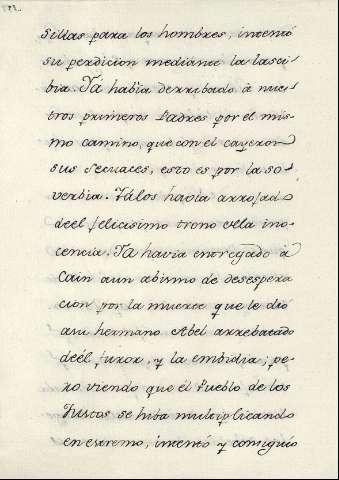 sillas para los hombres, intentó
su perdicion mediante la lasci-
bia. Ya había derribado à nues-
tros primeros Padres por el mis-
mo camino, que con el cayeron
sus secuaces, esto es por la so-
verbia. Ya los havia arrojad
deel felicisimo trono ella ino-
cencia. Ya havia entregado à
Cain aun abismo de desespera
cion por la muerte que le dió
asu hermano Abel arrebatado
deél furor, y la embidia; pe-
ro viendo que el Pueblo de los
Justos se hiba multiplicando
en estremo, intentó y consiguió